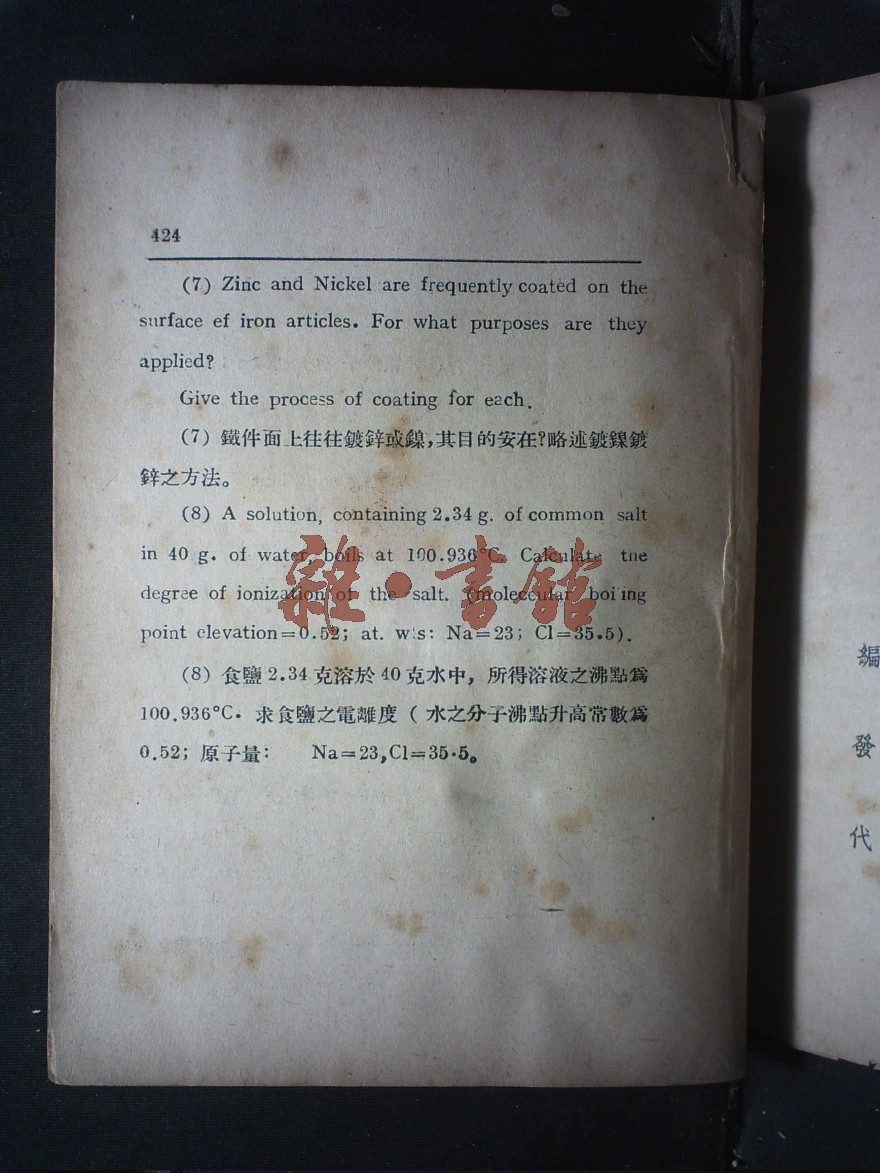 424
(7) Zinc and Nickel are frequently coated on the
surface ef iron articles. For what purposes are they
applied?
Give the process of coating for each.
(7) 鐵件面上往往鍍鋅或鎳,其目的安在?略述鍍鎳鍍
鋅之方法。
(8) A solution, containing 2.34 g. of common salt
in 40 g. of water, boils at 100.936°C. Calculate tne
degree of ionization of the salt. (moleccular boiling
point elevation=0.52; at. wts: Na=23; Cl=35.5).
(8) 食鹽 2.34 克溶於 40 克水中, 所得溶液之沸點爲
100.936°C. 求食鹽之電離度 ( 水之分子沸點升高常數爲
0.52; 原子量: Na=23,Cl=35.5。
雜•書館
編
發
代